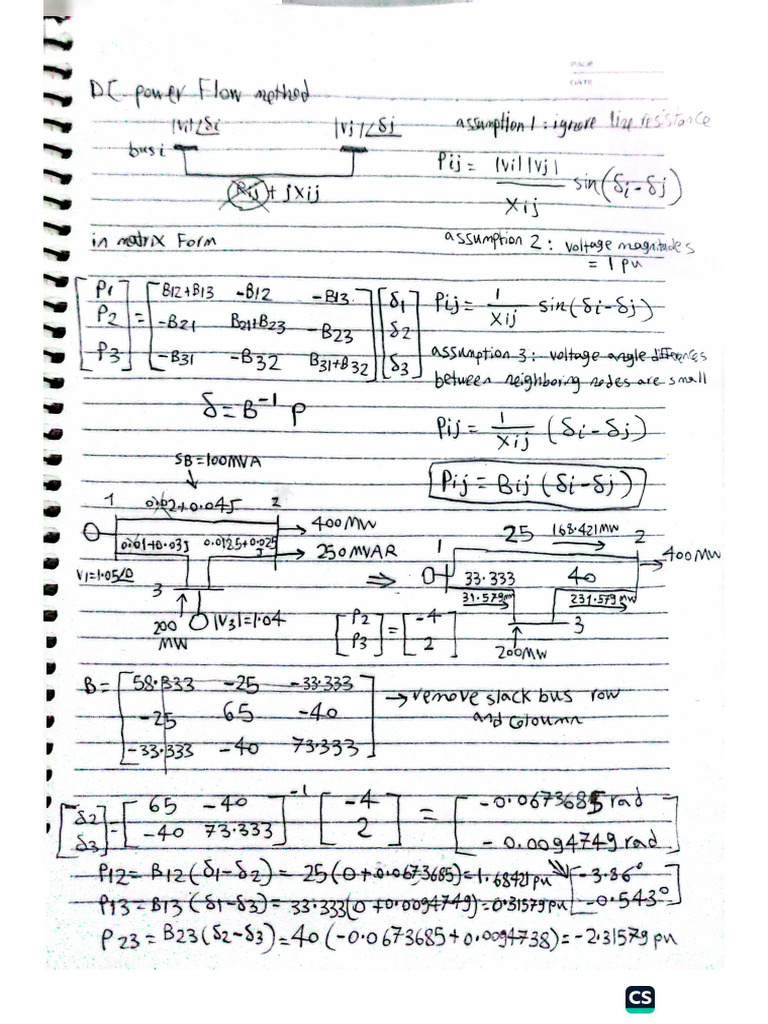 PAGE
DATE
DC power Flow method
|Vi|∠δi
|Vj|∠δj
assumption 1: ignore line resistance
bus i
Rij + jXij
Pij = |Vi||Vj| / Xij sin(δi-δj)
in matrix Form
assumption 2: voltage magnitudes
= 1 pu
[P1 P2 P3] = [B12+B13 -B12 -B13
-B21 B21+B23 -B23
-B31 -B32 B31+B32] [δ1 δ2 δ3]
Pij = 1/Xij sin(δi-δj)
assumption 3: voltage angle differences
between neighboring nodes are small
δ = B⁻¹ P
Pij = 1/Xij (δi-δj)
Pij = Bij (δi-δj)
SB=100MVA
1
0.02+0.04J
2
400MW
250MVAR
0.01+0.03J
0.0125+0.025J
V1=1.05∠0
3
200
MW
|V3|=1.04
⇒
1
25
168.421MW
2
400MW
33.333
40
31.579MW
231.579MW
3
200MW
[P2 P3] = [-4 2]
B= [58.333 -25 -33.333
-25 65 -40
-33.333 -40 73.333]
→ remove slack bus row
and coloumn
[δ2 δ3] = [65 -40
-40 73.333]⁻¹ [-4 2] = [-0.0673685 rad
-0.0094749 rad]
[-3.86°
-0.543°]
P12 = B12(δ1-δ2) = 25(0+0.0673685)=1.68421pu
P13 = B13(δ1-δ3) = 33.333(0+0.0094749)=0.31579pu
P23 = B23(δ2-δ3) = 40(-0.0673685+0.0094738) = -2.31579pu
CS